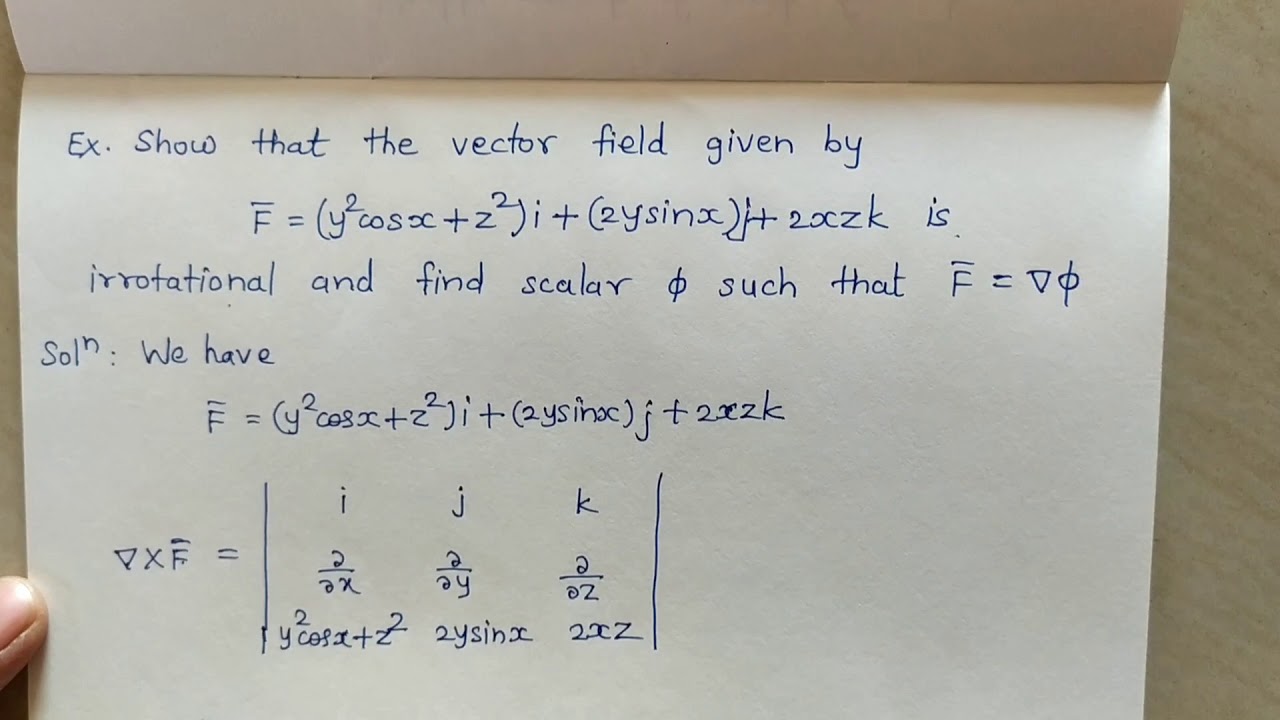 Ex. Show that the vector field given by
F̄ = (y²cosx + z²)i + (2ysinx)j + 2xzk is
irrotational and find scalar ϕ such that F̄ = ∇ϕ
Solⁿ: We have
F̄ = (y²cosx + z²)i + (2ysinx)j + 2xzk
i j k
∇×F̄ = | ∂/∂x ∂/∂y ∂/∂z |
y²cosx+z² 2ysinx 2xz